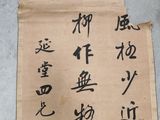 風極少近
柳作無
延堂四兄